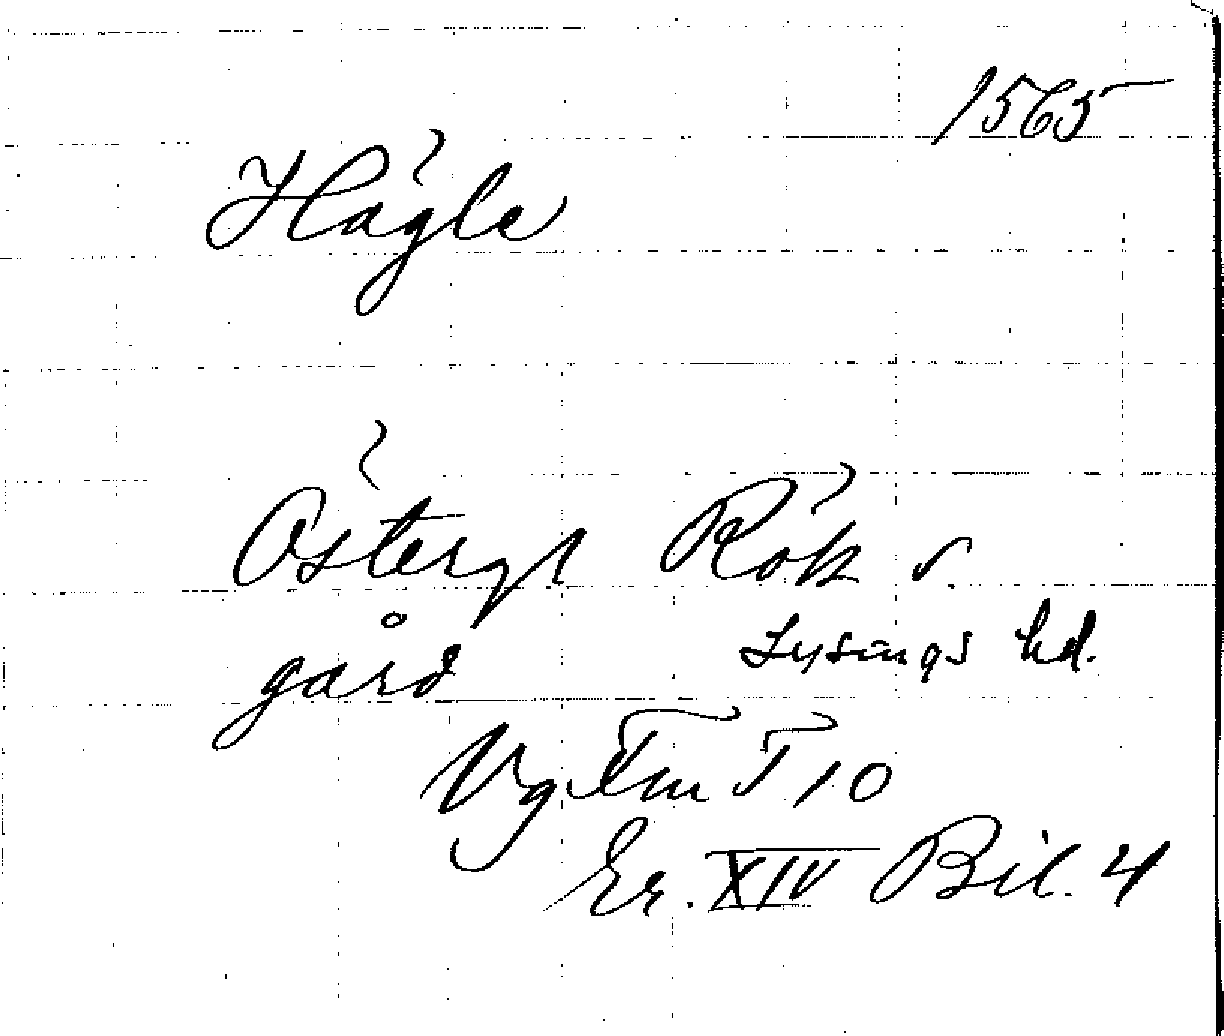 1565
Högle
Östergl Rök s.
gård Lysings hd.
Vg Fm T 10
Er. XIV Bil. 4